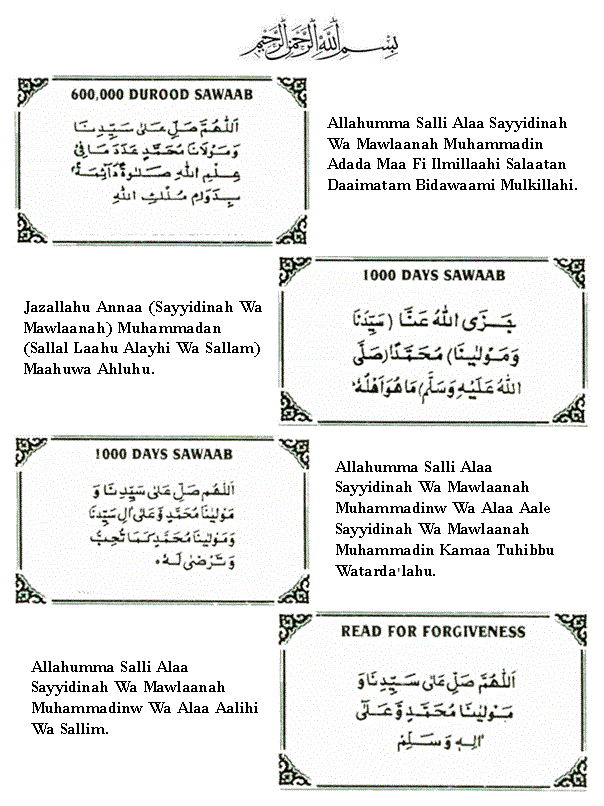 بِسْمِ اللهِ الرَّحْمٰنِ الرَّحِيْمِ
600,000 DUROOD SAWAAB
اَللّٰهُمَّ صَلِّ عَلٰى سَيِّدِنَا
وَمَوْلَانَا مُحَمَّدٍ عَدَدَ مَا فِىْ
عِلْمِ اللهِ صَلٰوةً دَآئِمَةً
بِدَوَامِ مُلْكِ اللهِ
Allahumma Salli Alaa Sayyidinah
Wa Mawlaanah Muhammadin
Adada Maa Fi Ilmillaahi Salaatan
Daaimatam Bidawaami Mulkillahi.
1000 DAYS SAWAAB
جَزَى اللهُ عَنَّا (سَيِّدَنَا
وَمَوْلٰينَا) مُحَمَّدًا (صَلَّى
اللهُ عَلَيْهِ وَسَلَّمَ) مَا هُوَ اَهْلُهٗ
Jazallahu Annaa (Sayyidinah Wa
Mawlaanah) Muhammadan
(Sallal Laahu Alayhi Wa Sallam)
Maahuwa Ahluhu.
1000 DAYS SAWAAB
اَللّٰهُمَّ صَلِّ عَلٰى سَيِّدِنَا وَ
مَوْلٰينَا مُحَمَّدٍ وَّعَلٰى اٰلِ سَيِّدِنَا
وَمَوْلٰينَا مُحَمَّدٍ كَمَا تُحِبُّ
وَتَرْضٰى لَهٗ
Allahumma Salli Alaa
Sayyidinah Wa Mawlaanah
Muhammadinw Wa Alaa Aale
Sayyidinah Wa Mawlaanah
Muhammadin Kamaa Tuhibbu
Watarda'lahu.
READ FOR FORGIVENESS
اَللّٰهُمَّ صَلِّ عَلٰى سَيِّدِنَا وَ
مَوْلٰينَا مُحَمَّدٍ وَّعَلٰٓى
اٰلِهٖ وَسَلِّمْ
Allahumma Salli Alaa
Sayyidinah Wa Mawlaanah
Muhammadinw Wa Alaa Aalihi
Wa Sallim.